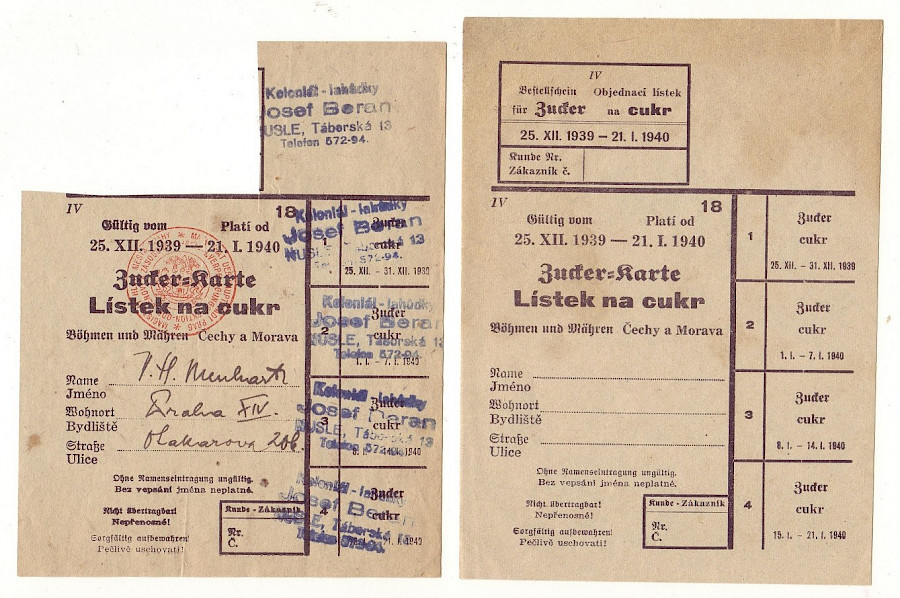 Koloniál - lahůdky
Josef Beran
NUSLE, Táborská 13
Telefon 572-94.
IV
18
Gültig vom Platí od
25. XII. 1939 — 21. I. 1940
Zucker-Karte
Lístek na cukr
Böhmen und Mähren Čechy a Morava
Name
Jméno
Wohnort Praha XIV.
Bydliště
Straße Otakarova 20b.
Ulice
Ohne Namenseintragung ungültig.
Bez vepsání jména neplatné.
Nicht übertragbar!
Nepřenosné!
Sorgfältig aufbewahren!
Pečlivě uschovati!
Kunde - Zákazník
Nr.
Č.
Koloniál - lahůdky
Josef Beran
NUSLE, Táborská 13
572-94.
1
Zucker
cukr
25. XII. — 31. XII. 1939
Koloniál - lahůdky
Josef Beran
NUSLE, Táborská 13
Telefon 572-94.
2
Zucker
cukr
1. I. — 7. I. 1940
Koloniál - lahůdky
Josef Beran
NUSLE, Táborská 13
Telefon 572-94.
3
Zucker
cukr
8. I. — 14. I. 1940
Koloniál - lahůdky
Josef Beran
NUSLE, Táborská 13
Telefon
4
Zucker
cukr
21. I. 1940
IV
Bestellschein Objednací lístek
für Zucker na cukr
25. XII. 1939 — 21. I. 1940
Kunde Nr.
Zákazník č.
IV
18
Gültig vom Platí od
25. XII. 1939 — 21. I. 1940
Zucker-Karte
Lístek na cukr
Böhmen und Mähren Čechy a Morava
Name
Jméno
Wohnort
Bydliště
Straße
Ulice
Ohne Namenseintragung ungültig.
Bez vepsání jména neplatné.
Nicht übertragbar!
Nepřenosné!
Sorgfältig aufbewahren!
Pečlivě uschovati!
Kunde - Zákazník
Nr.
Č.
1
Zucker
cukr
25. XII. — 31. XII. 1939
2
Zucker
cukr
1. I. — 7. I. 1940
3
Zucker
cukr
8. I. — 14. I. 1940
4
Zucker
cukr
15. I. — 21. I. 1940